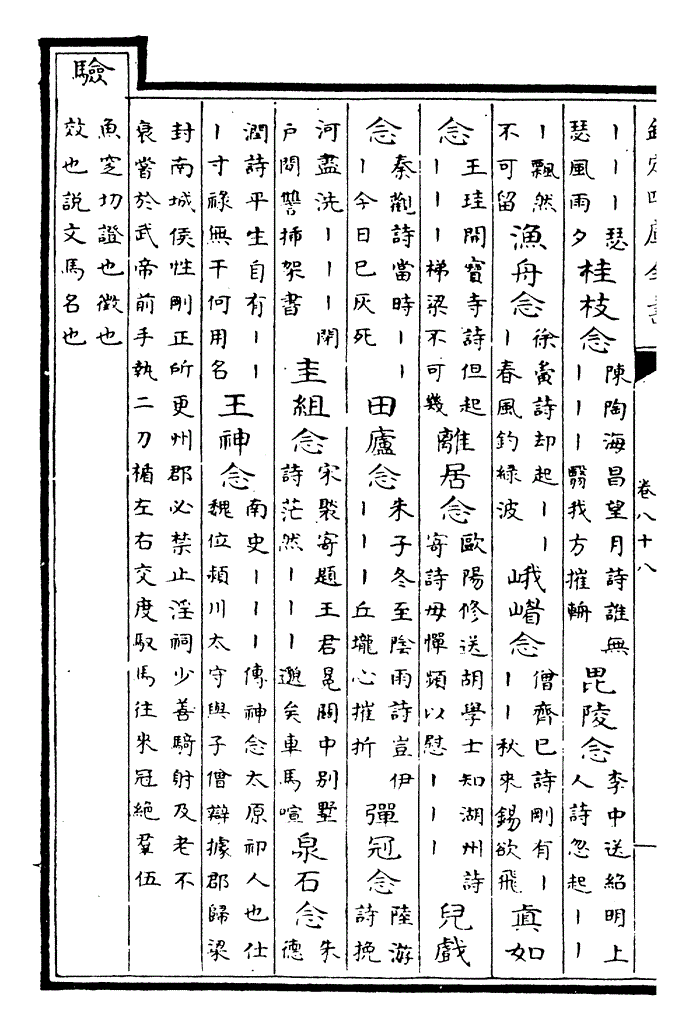 欽定四庫全書 卷八十八
丨丨丨瑟
瑟風雨夕
桂枝念
陳陶海昌望月詩誰無
丨丨丨翳我方摧輈
毘陵念
李中送紹明上
人詩忽起丨丨
丨飄然
不可留
漁舟念
徐夤詩却起丨丨
丨春風釣綠波
峨嵋念
僧齊已詩剛有丨
丨丨秋來錫欲飛
眞如
念
王珪開寶寺詩但起
丨丨丨梯梁不可幾
離居念
歐陽修送胡學士知湖州詩
寄詩毋憚頻以慰丨丨丨
兒戲
念
秦觀詩當時丨丨
丨今日已灰死
田廬念
朱子冬至陰雨詩豈伊
丨丨丨丘壠心摧折
彈冠念
陸游
詩挽
河盡洗丨丨丨閉
戸閒讐揷架書
圭組念
宋褧寄題王君冕關中别墅
詩茫然丨丨丨邈矣車馬喧
泉石念
朱
德
潤詩平生自有丨丨
丨寸祿無干何用名
王神念
南史丨丨丨傳神念太原祁人也仕
魏位潁川太守與子僧辯據郡歸梁
封南城侯性剛正所更州郡必禁止淫祠少善騎射及老不
衰嘗於武帝前手執二刀楯左右交度馭馬往來冠絶羣伍
驗
魚窆切證也徵也
效也説文馬名也